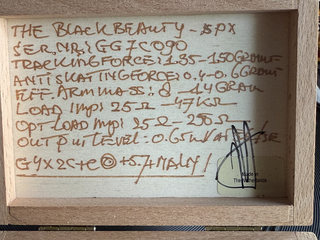 THE BLACK BEAUTY - SPX
SER.NR.: GG7C090
TRACKINGFORCE: 1.35-1.50GRAM
ANTISKATINGFORCE: 0.4-0.6GRAM
EFF. ARMMASS: 8 -14 GRAM
LOAD IMP: 25Ω - 47KΩ
OPT-LOAD IMP: 25Ω-250Ω
OUTPUT LEVEL: 0.65MV AT
Made in
The Netherlands